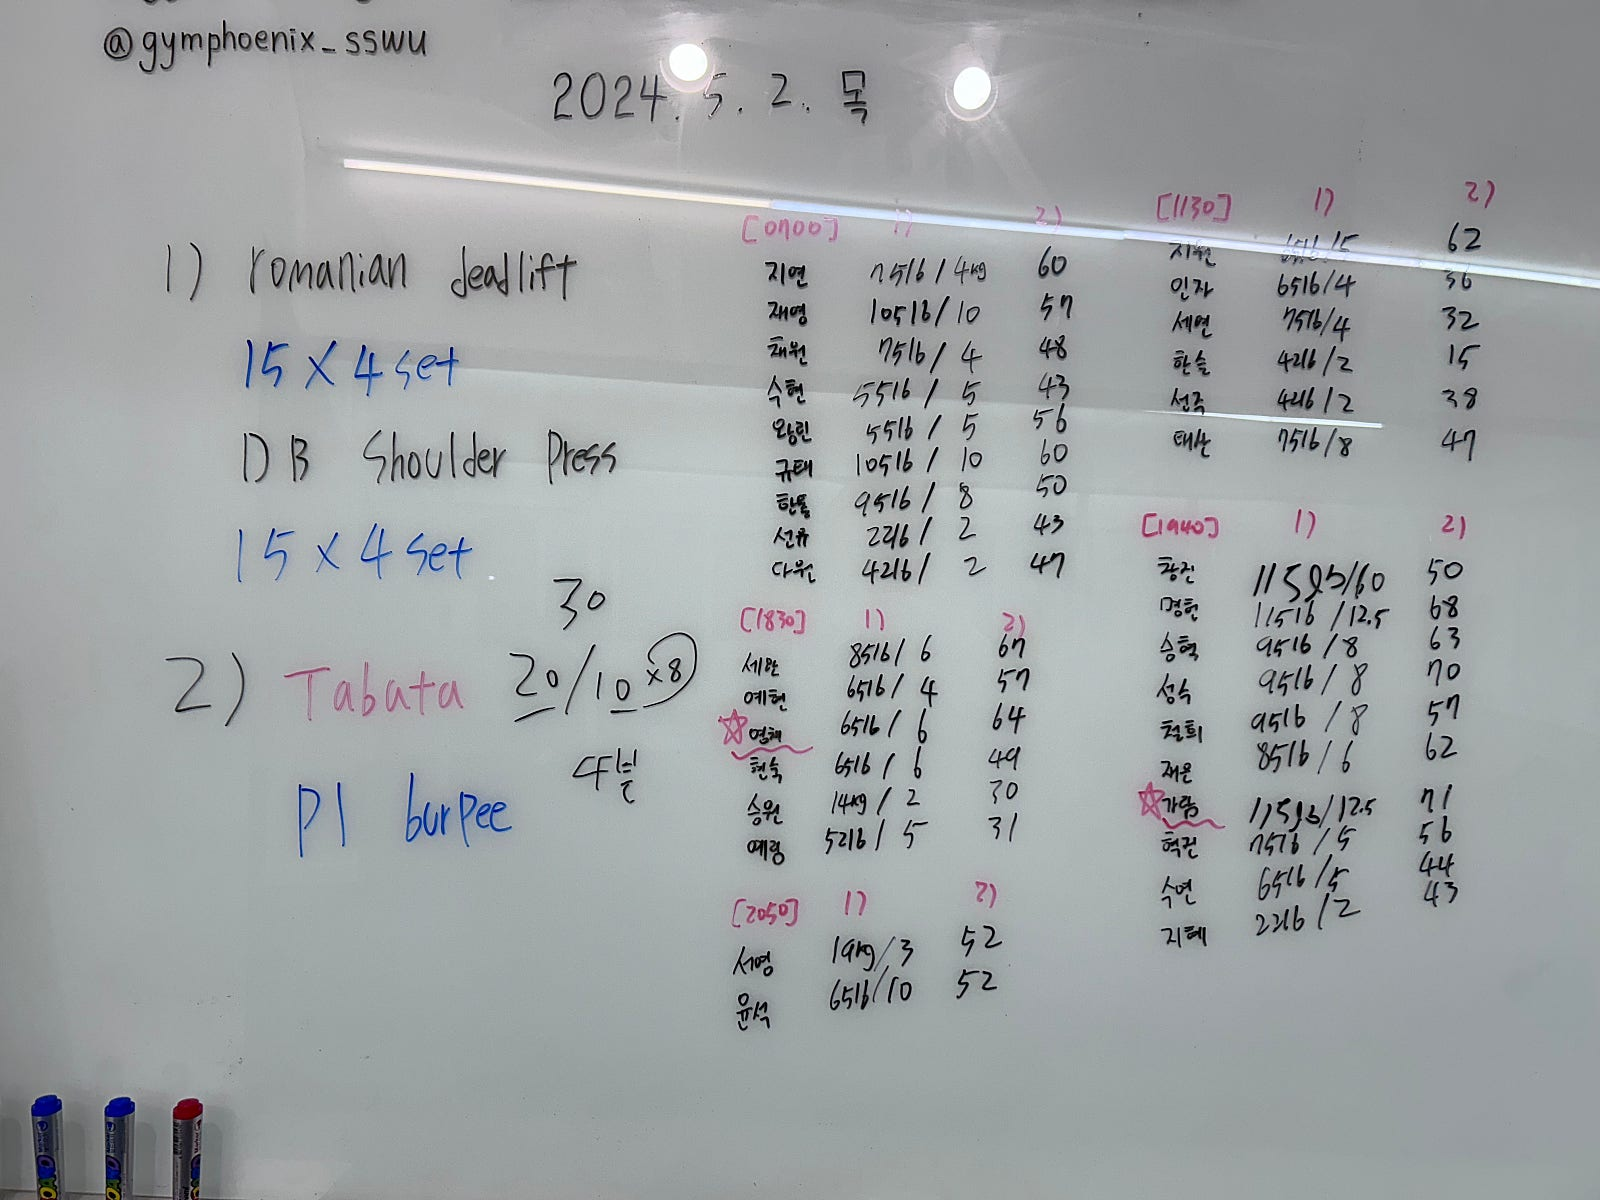 @gymphoenix_sswu
2024. 5. 2. 목
1) romanian deadlift
15 x 4 set
DB Shoulder Press
15 x 4 set
30
2) Tabata 20/10 x8
4분
P1 burpee
[0700] 1) 2)
지연 75lb/4kg 60
재영 105lb/10 57
채원 75lb/4 48
수현 55lb/5 43
왕린 55lb/5 56
규태 105lb/10 60
한동 95lb/8 50
선유 22lb/2 43
다원 42lb/2 47
[1830] 1) 2)
세완 85lb/6 67
예현 65lb/4 57
영채 65lb/6 64
현숙 65lb/6 49
승원 14kg/2 30
예랑 52lb/5 31
[2050] 1) 2)
서영 19kg/3 52
윤석 65lb/10 52
[1130] 1) 2)
지원 65lb/5 62
인자 65lb/4 36
세연 75lb/4 32
한슬 42lb/2 15
선주 42lb/2 38
태산 75lb/8 47
[1940] 1) 2)
창진 115lb/60 50
명헌 115lb/12.5 68
승혁 95lb/8 63
성식 95lb/8 70
철희 95lb/8 57
재은 85lb/6 62
가람 115lb/12.5 71
혁권 75lb/5 56
수연 65lb/5 44
지혜 22lb/2 43